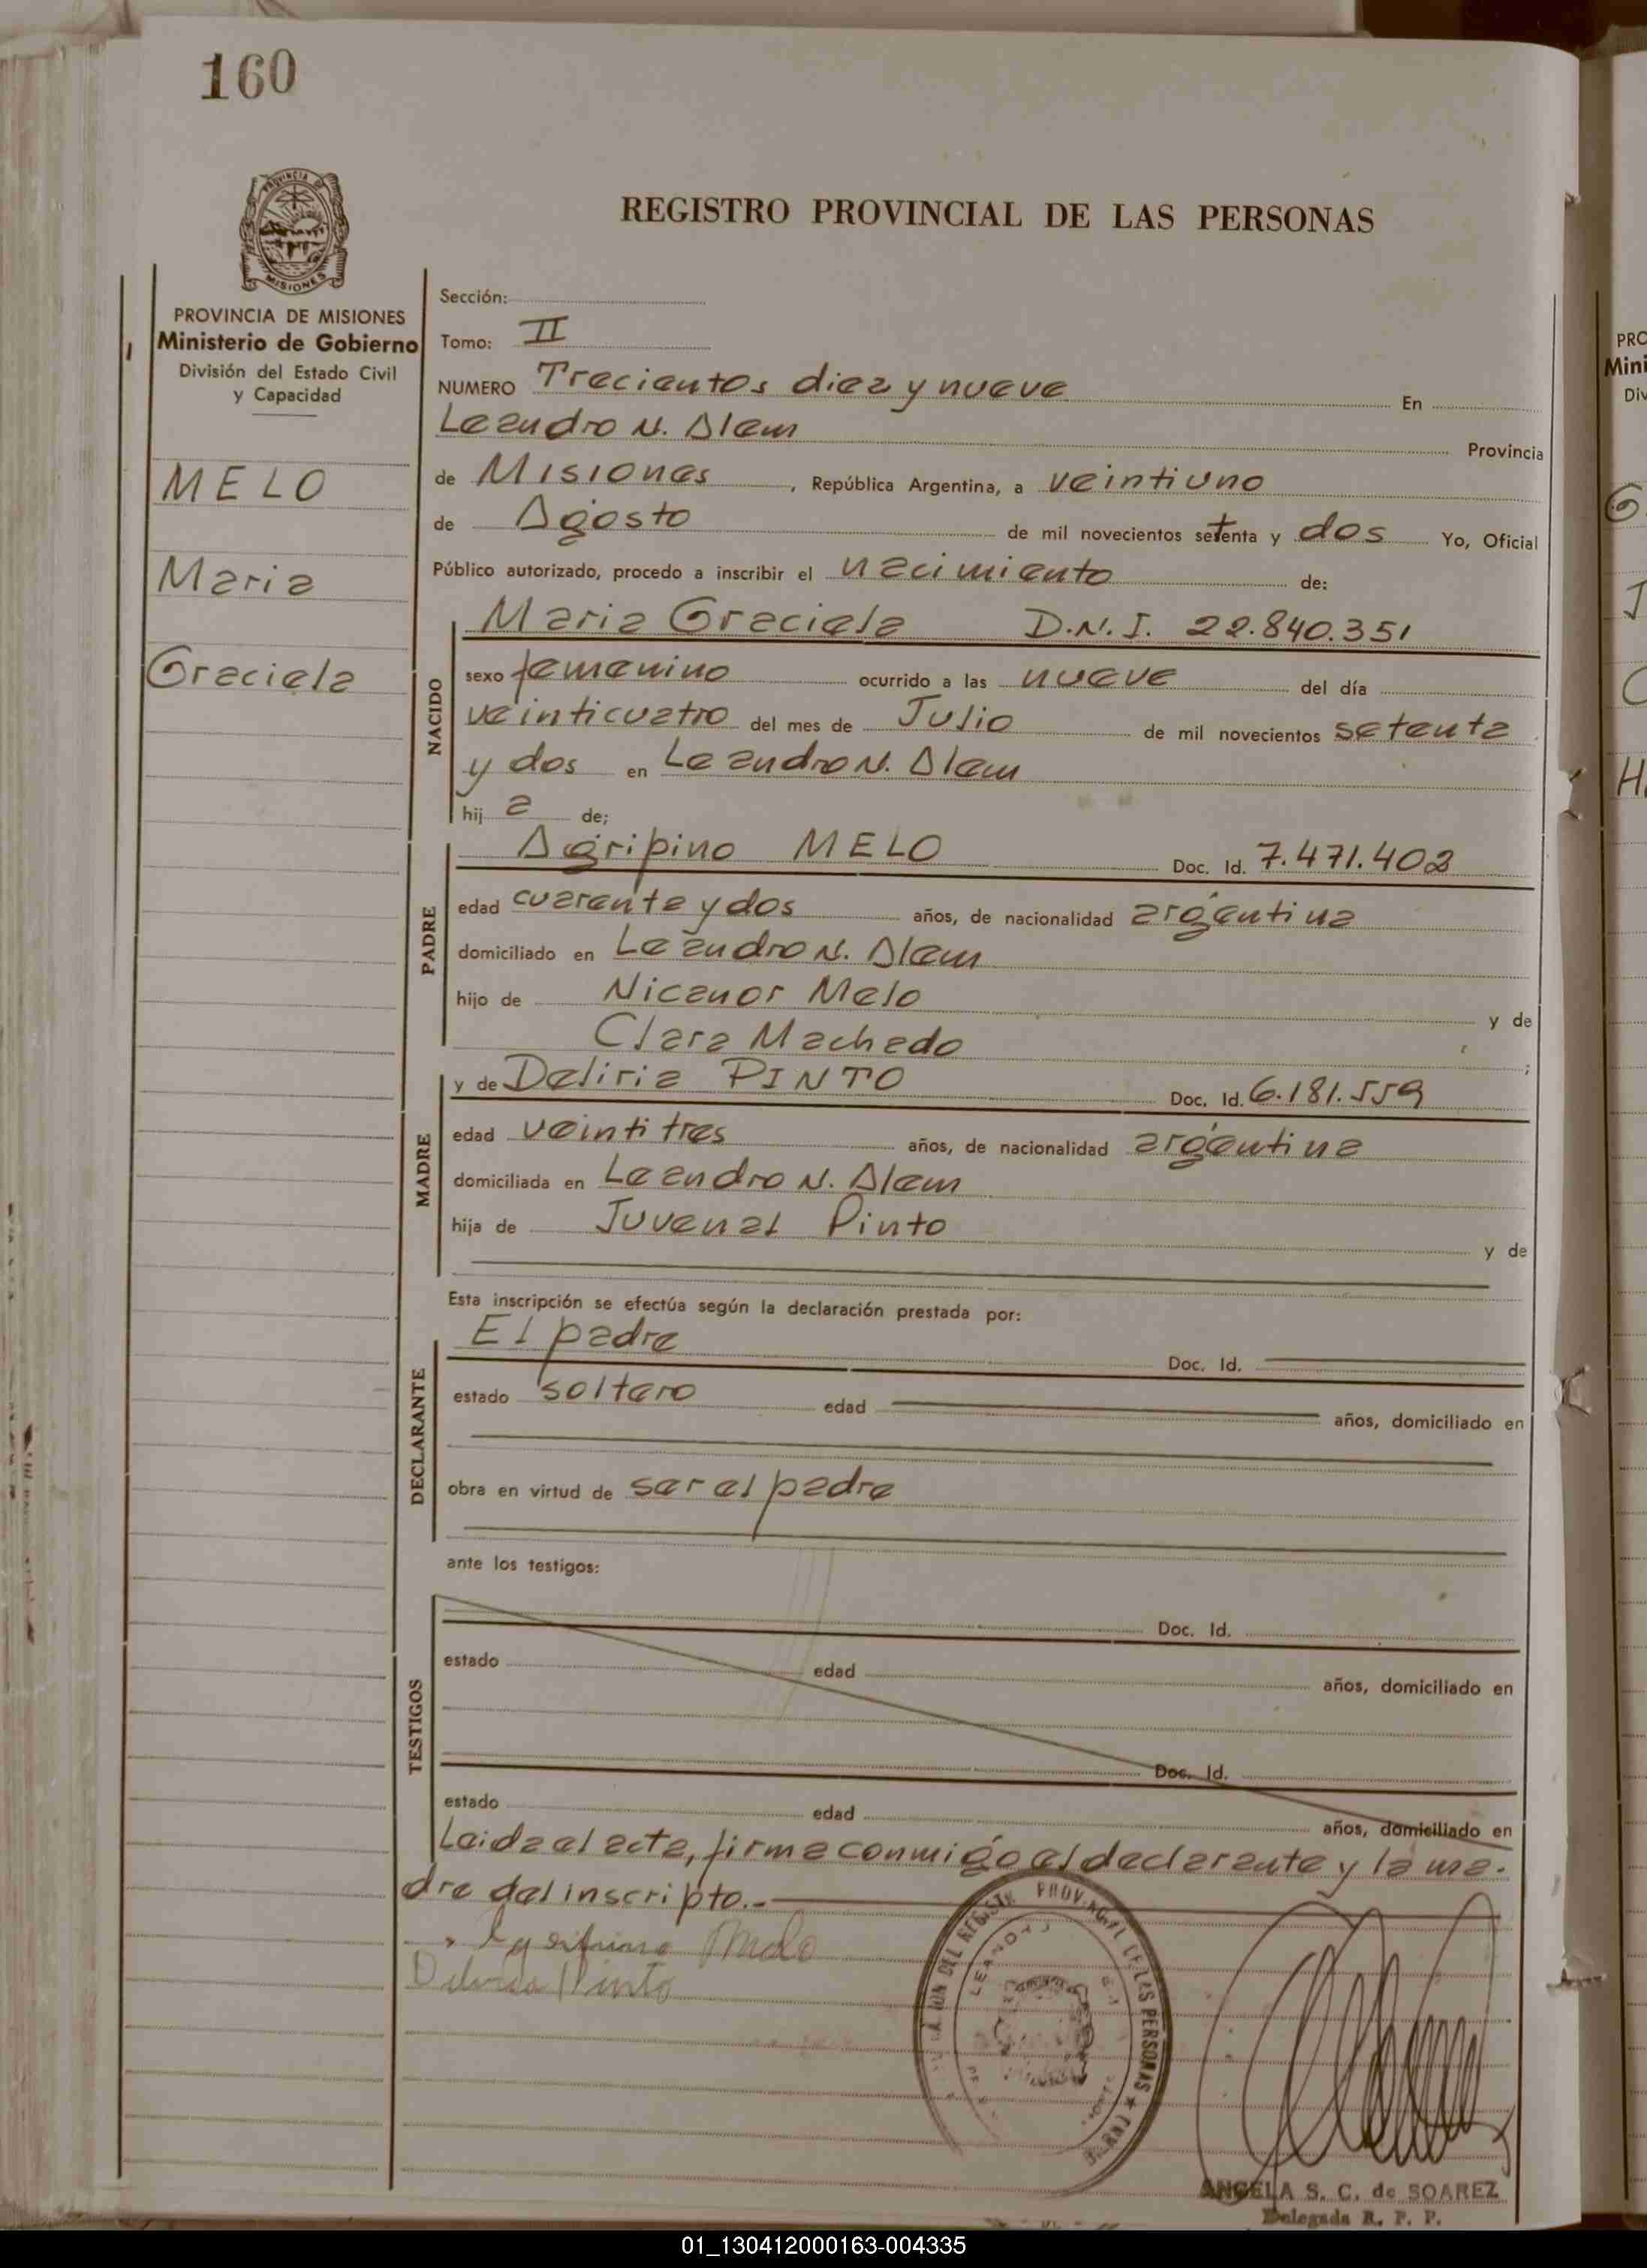 160
PROVINCIA DE
MISIONES
REGISTRO PROVINCIAL DE LAS PERSONAS
PROVINCIA DE MISIONES
Ministerio de Gobierno
División del Estado Civil
y Capacidad
MELO
Maria
Graciela
Sección:
Tomo: II
NUMERO Trecientos diez y nueve En
Leandro N. Alem Provincia
de Misiones, República Argentina, a veintiuno
de Agosto de mil novecientos setenta y dos Yo, Oficial
Público autorizado, procedo a inscribir el nacimiento de:
Maria Graciela D.N.I. 22.840.351
NACIDO
sexo femenino ocurrido a las nueve del día
veinticuatro del mes de Julio de mil novecientos setenta
y dos en Leandro N. Alem
hij a de;
PADRE
Agripino MELO Doc. Id. 7.471.402
edad cuarenta y dos años, de nacionalidad argentina
domiciliado en Leandro N. Alem
hijo de Nicanor Melo y de
Clara Machado ;
MADRE
y de Deliria PINTO Doc. Id. 6.181.559
edad veintitres años, de nacionalidad argentina
domiciliada en Leandro N. Alem
hija de Juvenal Pinto y de
Esta inscripción se efectúa según la declaración prestada por:
DECLARANTE
El padre Doc. Id.
estado soltero edad años, domiciliado en
obra en virtud de ser el padre
ante los testigos:
TESTIGOS
Doc. Id.
estado edad años, domiciliado en
Doc. Id.
estado edad años, domiciliado en
Leida el acta, firma conmigo el declarante y la ma-
dre del inscripto.-
Melo
Pinto
DEL REGISTR PROVINCIAL DE LAS PERSONAS
ANGELA S. C. de SOAREZ
Delegada R. P. P.
PRO
Mini
Div
G
J
C
H
01_130412000163-004335